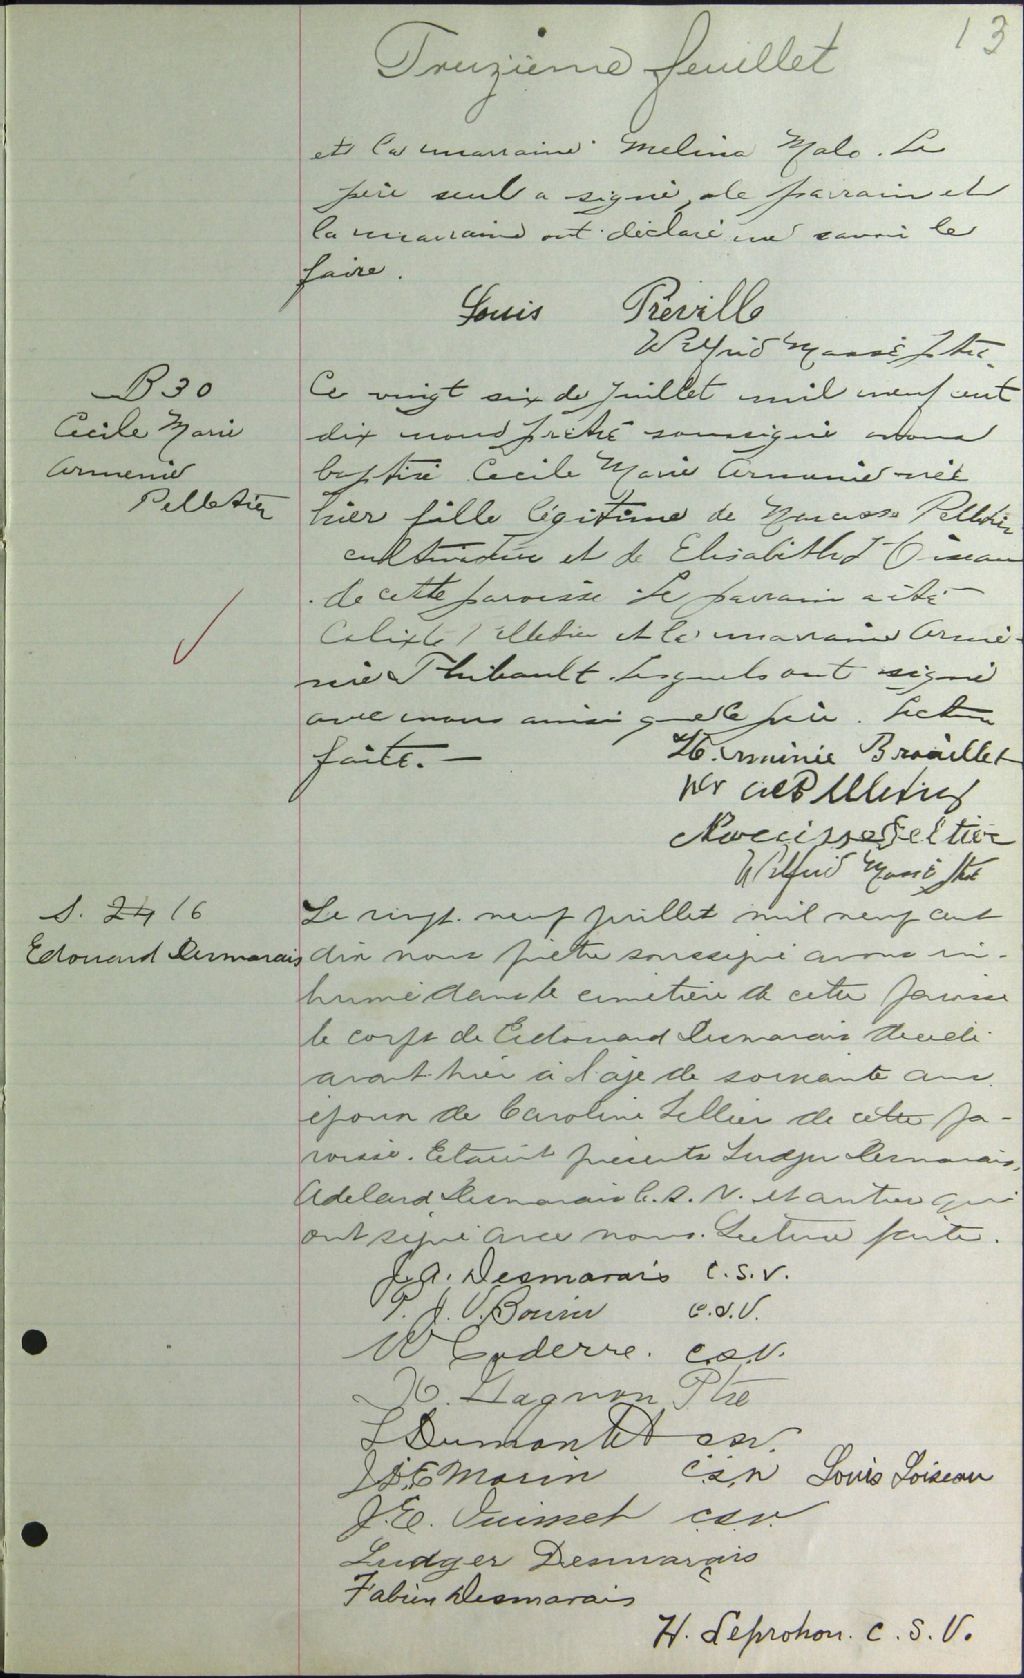 13
Treizième feuillet
et la marraine Melina Malo. Le
père seul a signé, le parrain et
la marraine ont déclaré ne savoir le
faire.
Louis Préville
Wilfrid Massé Ptre
B 30
Cecile Marie
Armenie
Pelletier
Ce vingt six de Juillet mil neuf cent
dix nous prêtre soussigné avons
baptisé Cecile Marie Armenie née
hier fille légitime de Narcisse Pelletier
cultivateur et de Elisabeth Oiseau
de cette paroisse Le parrain a été
Calixte Pelletier et la marraine Armé-
nie Thibault lesquels ont signé
avec nous ainsi que le père. Lecture
faite. —
Brouillet
Narcisse Peltier
Wilfrid Massé Ptre
S. 24 16
Edouard Desmarais
Le vingt-neuf juillet mil neuf cent
dix nous prêtre soussigné avons in-
humé dans le cimetière de cette paroisse
le corps de Edouard Desmarais decedé
avant-hier à l'age de soixante ans
époux de Caroline Tellier de cette pa-
roisse. Etaient présents Ludger Desmarais,
Adelard Desmarais C. S. V. et autres qui
ont signé avec nous. Lecture faite.
J. A. Desmarais C.S.V.
P. J. V. Bonin C.S.V.
W Coderre. C.S.V.
H. Gagnon Ptre
L Dumontet csv.
J.D.E Morin C.S.V Louis Loiseau
J.E. Ouimet C.S.V.
Ludger Desmarais
Fabien Desmarais
H. Leprohon. C. S. V.